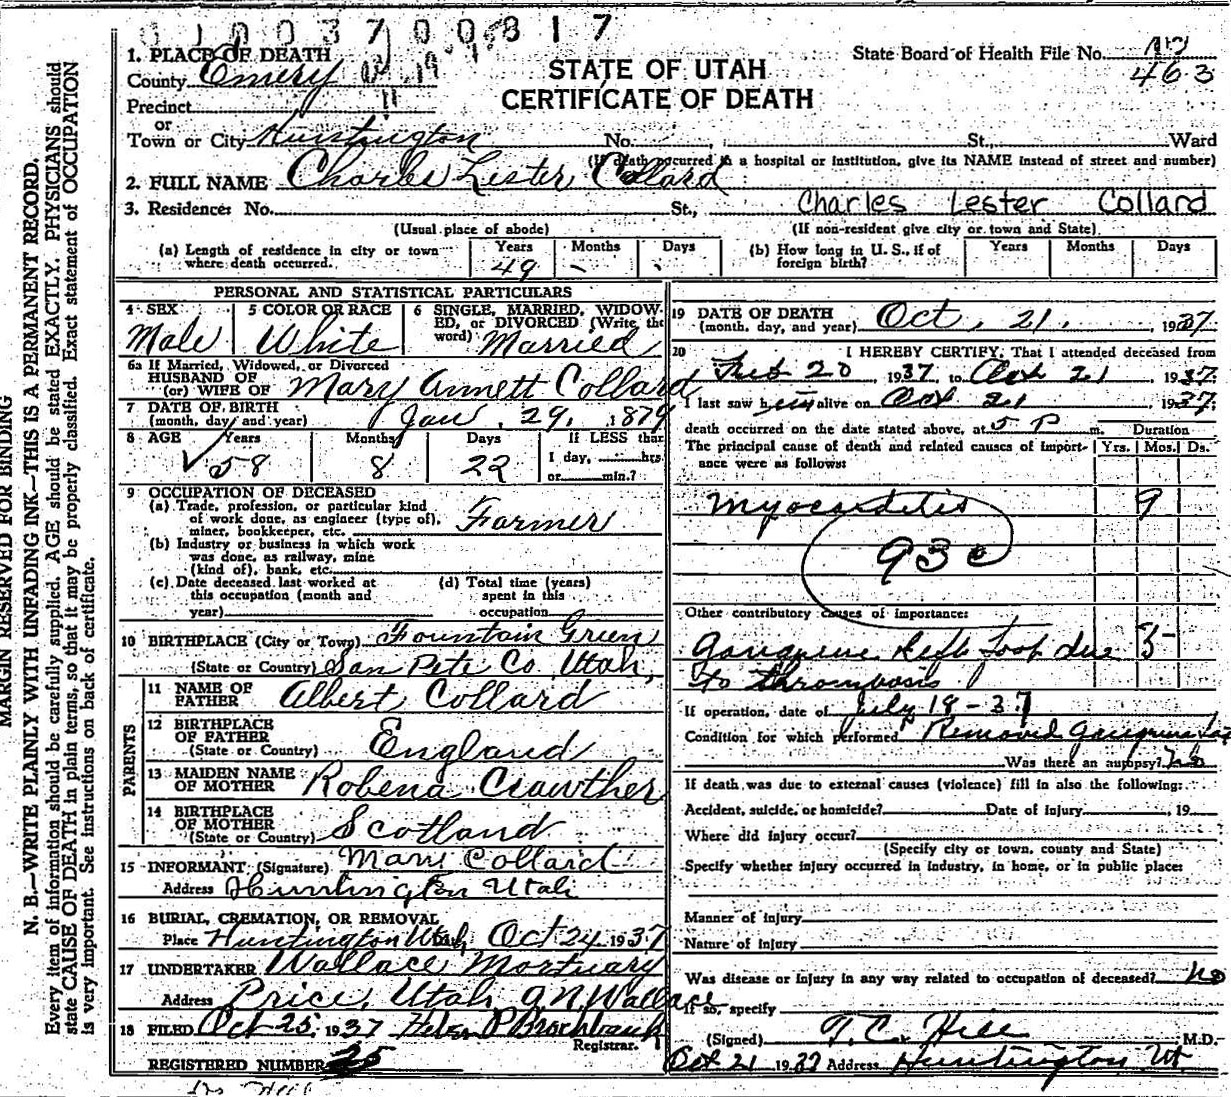 0 1 0 0 3 7 0 0 8 1 7
State Board of Health File No.
463
STATE OF UTAH
CERTIFICATE OF DEATH
1. PLACE OF DEATH
County Emery
Precinct
or
Town or City Huntington No. St., Ward
(If death occurred in a hospital or institution, give its NAME instead of street and number)
2. FULL NAME Charles Lester Collard
3. Residence: No. St., Charles Lester Collard
(Usual place of abode) (If non-resident give city or town and State)
(a) Length of residence in city or town where death occurred. Years 49 Months - Days
(b) How long in U. S., if of foreign birth? Years Months Days
PERSONAL AND STATISTICAL PARTICULARS
4 SEX Male
5 COLOR OR RACE White
6 SINGLE, MARRIED, WIDOWED, or DIVORCED (Write the word) Married
6a If Married, Widowed, or Divorced
HUSBAND OF
(or) WIFE OF Mary Annett Collard
7 DATE OF BIRTH
(month, day and year) Jan. 29, 1879
8 AGE Years 58 Months 8 Days 22
If LESS than
1 day, hrs.
or min.?
9 OCCUPATION OF DECEASED
(a) Trade, profession, or particular kind
of work done, as engineer (type of),
miner, bookkeeper, etc. Farmer
(b) Industry or business in which work
was done, as railway, mine
(kind of), bank, etc.
(c) Date deceased last worked at
this occupation (month and
year)
(d) Total time (years)
spent in this
occupation
10 BIRTHPLACE (City or Town) Fountain Green
(State or Country) San Pete Co. Utah,
PARENTS
11 NAME OF
FATHER Albert Collard
12 BIRTHPLACE
OF FATHER
(State or Country) England
13 MAIDEN NAME
OF MOTHER Robena Crowther
14 BIRTHPLACE
OF MOTHER
(State or Country) Scotland
15 INFORMANT (Signature) Mary Collard
Address Huntington Utah
16 BURIAL, CREMATION, OR REMOVAL
Place Huntington Utah, Oct 24 1937
17 UNDERTAKER Wallace Mortuary
Address Price, Utah J.N. Wallace
18 FILED Oct 25, 1937 Helen P Brockbank
Registrar.
REGISTERED NUMBER 25
19 DATE OF DEATH
(month, day, and year) Oct. 21. 1937
20 I HEREBY CERTIFY, That I attended deceased from
Feb 20, 1937, to Oct 21, 1937.
I last saw him alive on Oct 21, 1937.
death occurred on the date stated above, at 5 P m. Duration
The principal cause of death and related causes of importance were as follows: Yrs. Mos. Ds.
Myocarditis 9
93c
Other contributory causes of importance:
Gangrene Left Foot due 3
to thrombosis
If operation, date of July 18-37
Condition for which performed Removed Gangrene
Was there an autopsy? No
If death was due to external causes (violence) fill in also the following:
Accident, suicide, or homicide? Date of injury , 19
Where did injury occur?
(Specify city or town, county and State)
Specify whether injury occurred in industry, in home, or in public place:
Manner of injury
Nature of injury
Was disease or injury in any way related to occupation of deceased? No
If so, specify
(Signed) T. C. Hill M.D.
Oct 21 1937 Address Huntington Ut.
MARGIN RESERVED FOR BINDING
N. B.—WRITE PLAINLY WITH UNFADING INK—THIS IS A PERMANENT RECORD.
Every item of information should be carefully supplied. AGE should be stated EXACTLY. PHYSICIANS should
state CAUSE OF DEATH in plain terms, so that it may be properly classified. Exact statement of OCCUPATION
is very important. See instructions on back of certificate.